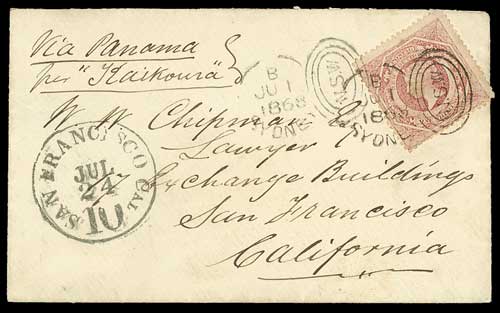 Via Panama
per "Kaikoura"
B
JU 1
1868
SYDNEY
NSW
B
JU 1
1868
SYDNEY
NSW
W. W. Chipman Esq
Lawyer
Exchange Buildings
San Francisco
California
SAN FRANCISCO CAL.
JUL
24
10